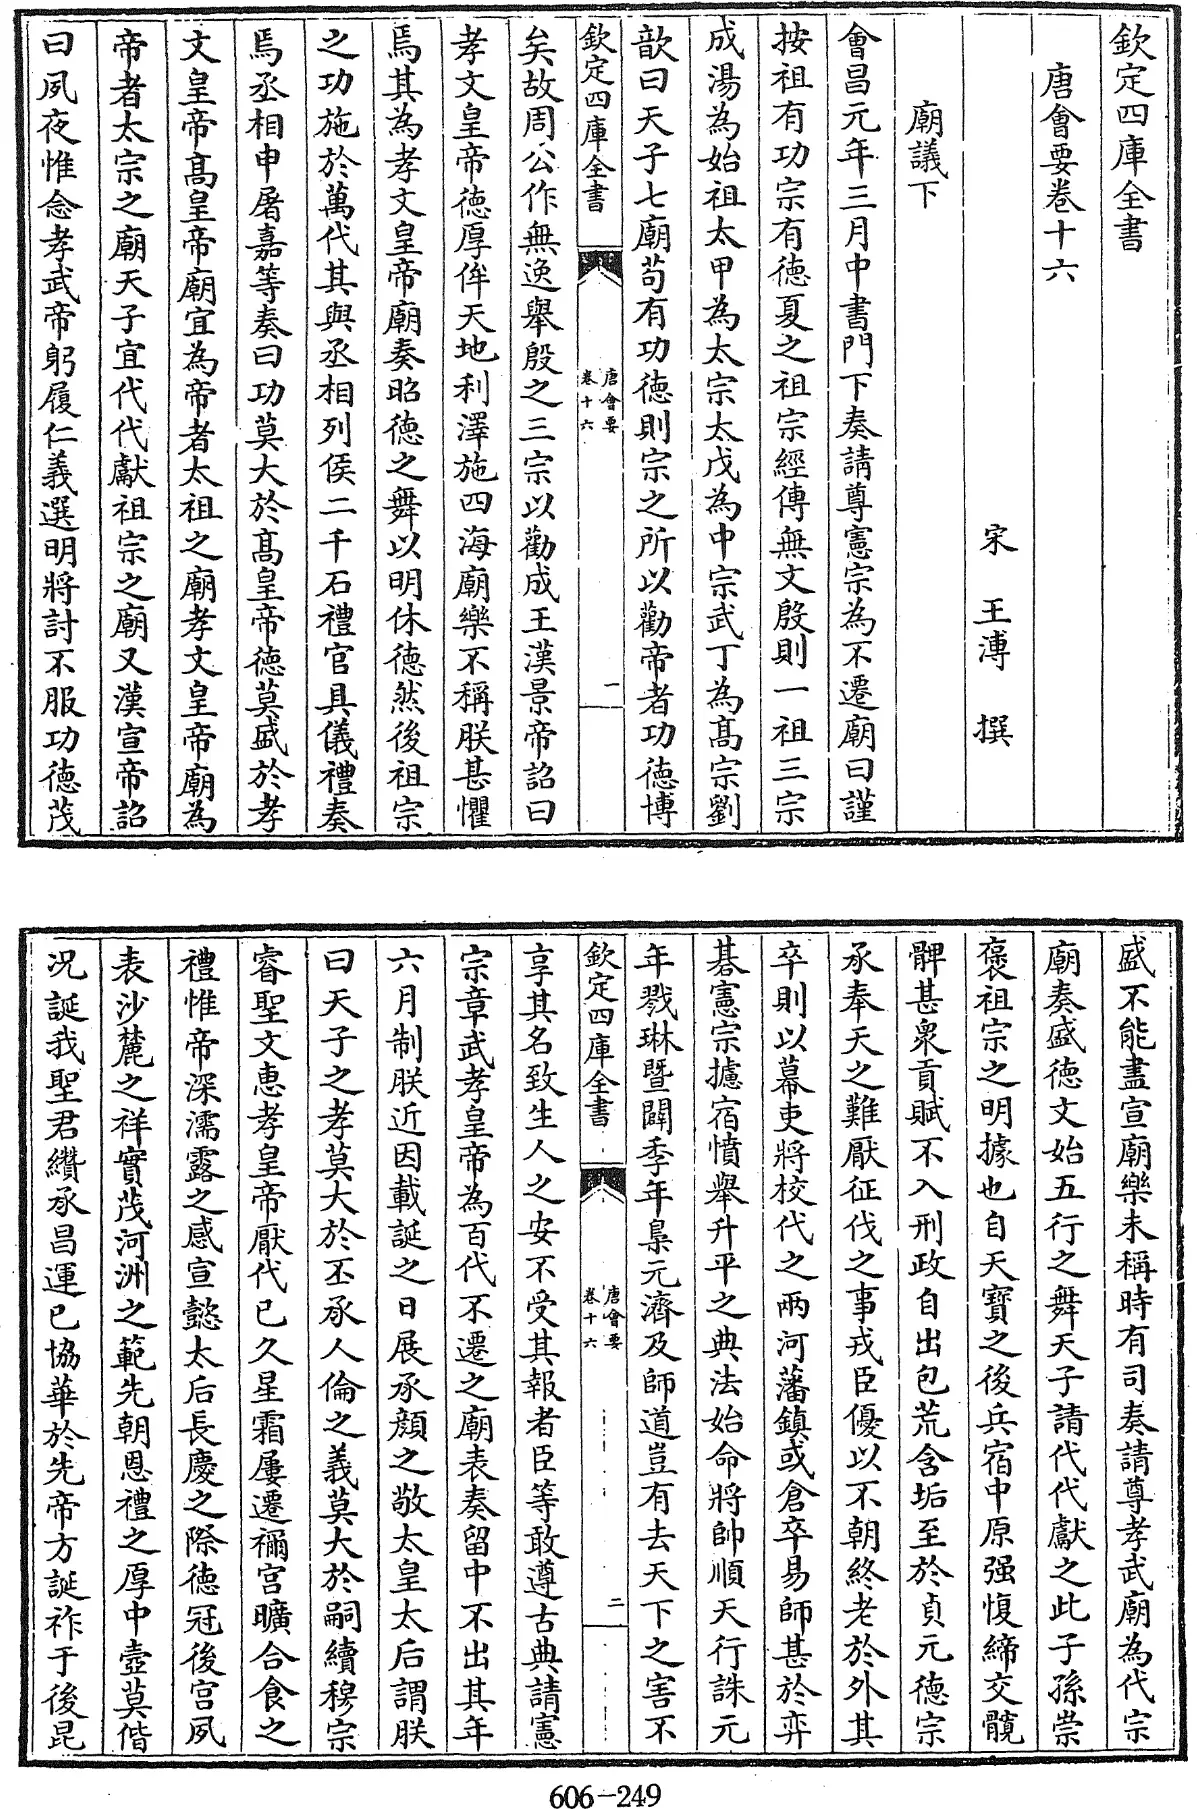 欽定四庫全書
唐會要卷十六
宋 王溥 撰
廟議下
會昌元年三月中書門下奏請尊憲宗為不遷廟曰謹
按祖有功宗有德夏之祖宗經傳無文殷則一祖三宗
成湯為始祖太甲為太宗太戊為中宗武丁為髙宗劉
歆曰天子七廟苟有功德則宗之所以勸帝者功德博
欽定四庫全書
唐會要
卷十六
一
矣故周公作無逸舉殷之三宗以勸成王漢景帝詔曰
孝文皇帝德厚侔天地利澤施四海廟樂不稱朕甚懼
焉其為孝文皇帝廟奏昭德之舞以明休德然後祖宗
之功施於萬代其與丞相列侯二千石禮官具儀禮奏
焉丞相申屠嘉等奏曰功莫大於髙皇帝德莫盛於孝
文皇帝髙皇帝廟宜為帝者太祖之廟孝文皇帝廟為
帝者太宗之廟天子宜代代獻祖宗之廟又漢宣帝詔
曰夙夜惟念孝武帝躬履仁義選明將討不服功德茂
盛不能盡宣廟樂未稱時有司奏請尊孝武廟為代宗
廟奏盛德文始五行之舞天子請代代獻之此子孫崇
褒祖宗之明據也自天寶之後兵宿中原强愎締交髖
髀甚衆貢賦不入刑政自出包荒含垢至於貞元德宗
承奉天之難厭征伐之事戎臣優以不朝終老於外其
卒則以幕吏將校代之兩河藩鎮或倉卒易師甚於弈
棊憲宗攄宿憤舉升平之典法始命將帥順天行誅元
年戮琳暨闢季年梟元濟及師道豈有去天下之害不
欽定四庫全書
唐會要
卷十六
二
享其名致生人之安不受其報者臣等敢遵古典請憲
宗章武孝皇帝為百代不遷之廟表奏留中不出其年
六月制朕近因載誕之日展承顔之敬太皇太后謂朕
曰天子之孝莫大於丕承人倫之義莫大於嗣續穆宗
睿聖文惠孝皇帝厭代已久星霜屢遷禰宫曠合食之
禮惟帝深濡露之感宣懿太后長慶之際德冠後宫夙
表沙麓之祥實茂河洲之範先朝恩禮之厚中壼莫偕
况誕我聖君纘承昌運已協華於先帝方誕祚于後昆
606-249